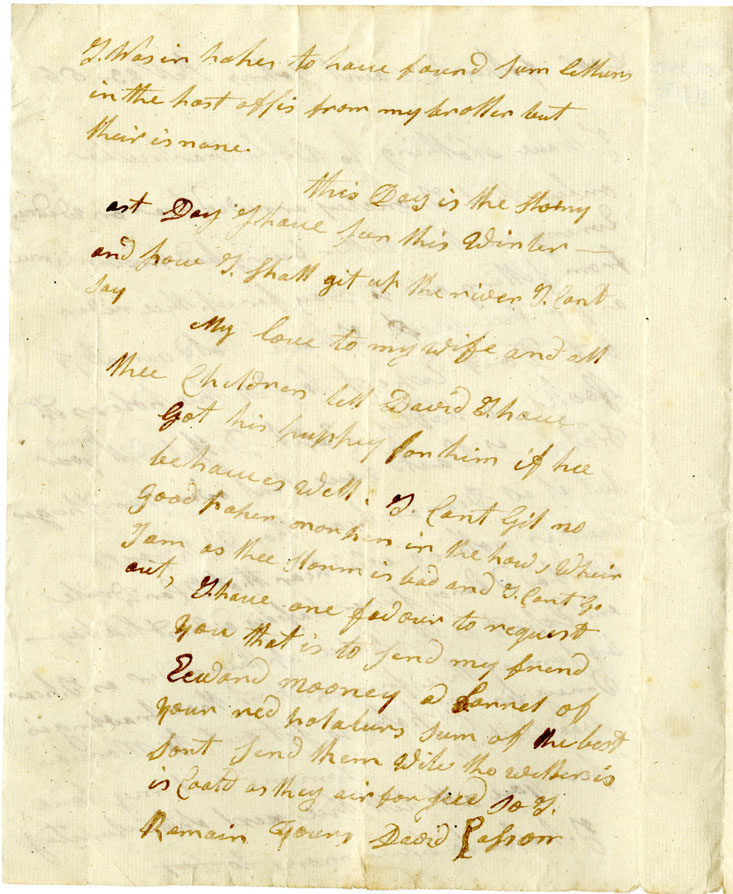 I Was in hopes to have found sum letters
in the post offis from my brother but
their is none.
this Day is the stormy
est Day I have sen this Winter —
and howe I. Shall git up the river I. Cant
Say
My love to my wife and all
thee Children tell David I have
Got his puppey for him if hee
behaves well. I. Cant Git no
Good paper nor pen in the hows Wheir
I am as thee storm is bad and I. Cant Go
out, I have one favour to request
you that is to send my frend
Edward mooney a barrel of
your red potaturs sum of the best
sort send them Wile the wether is
is Coold as they air for seed so I.
Remain Yours David